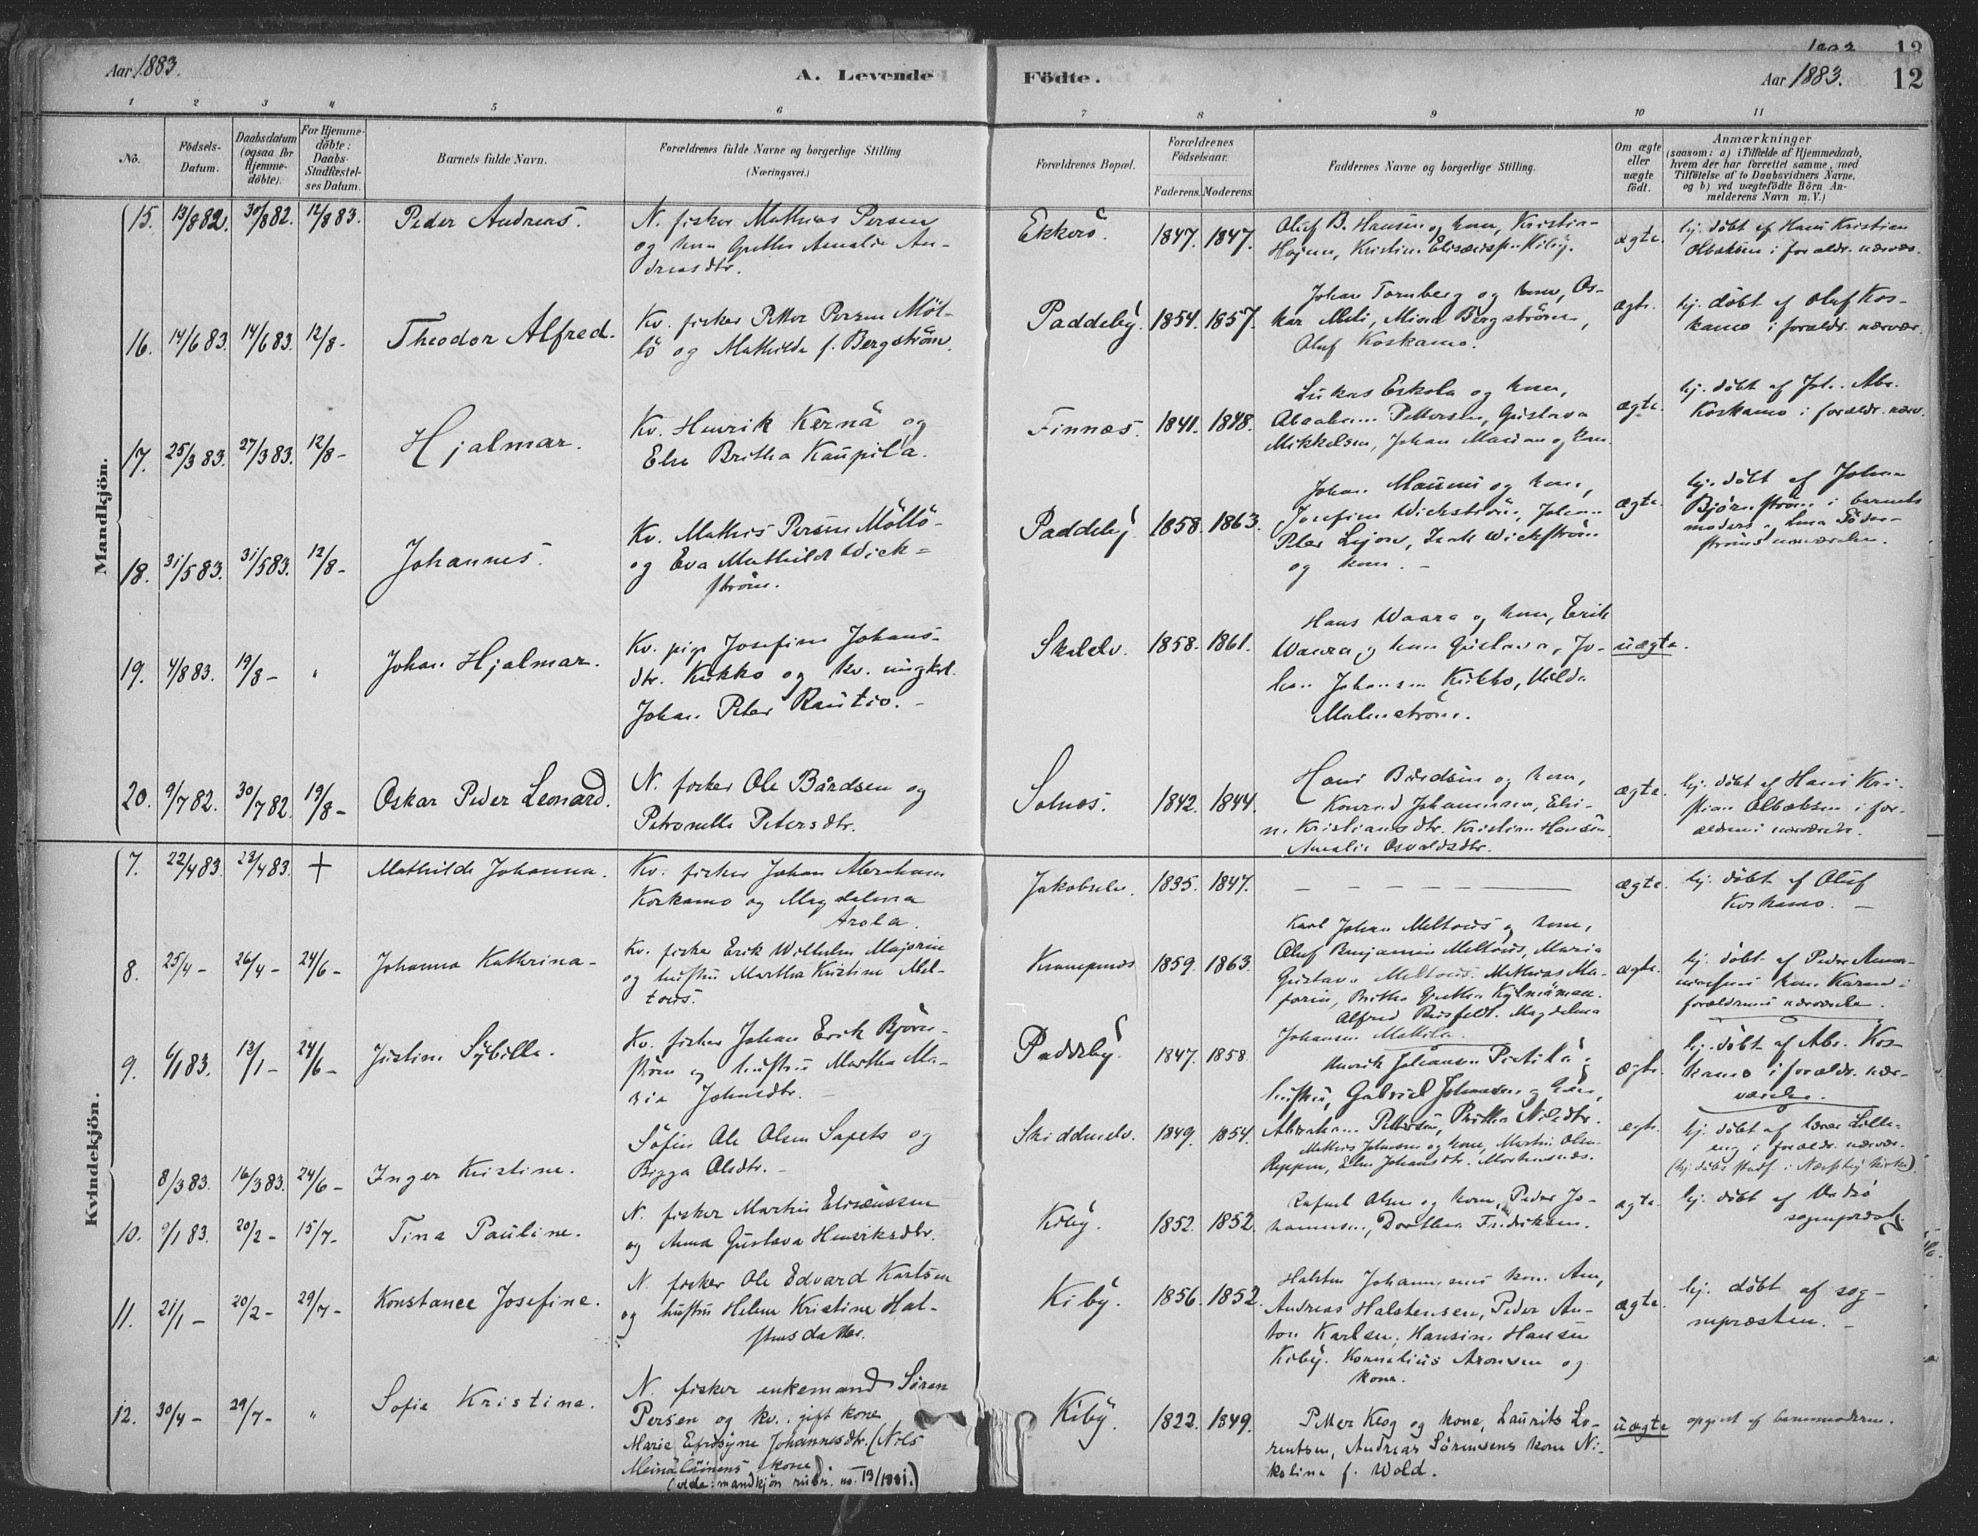 Aar 1883.
A. Levende Födte.
Aar 1883.
12
1 2 3 4 5 6 7 8 9 10 11
No.
Födsels-Datum.
Daabsdatum (ogsaa for Hjemme-döbte).
For Hjemme-döbte: Daabs-Stadfæstel-ses Datum.
Barnets fulde Navn.
Forældrenes fulde Navne og borgerlige Stilling (Næringsvei.)
Forældrenes Bopæl.
Forældrenes Födselsaar.
Faderens. Moderens.
Faddernes Navne og borgerlige Stilling.
Om ægte eller uægte födt.
Anmærkninger
(saasom: a) i Tilfælde af Hjemmedaab,
hvem der har forrettet samme, med
Tilföielse af to Daabsvidners Navne.
og b) ved uægtefödte Börn An-
melderens Navn m. V.)
Mandkjön.
15. 13/8 82. 30/8 82. 12/8 83. Peder Andreas.
N. fisker Mathias Persen
og kone Grethe Amalie An-
dreasdtr.
Ekkerö. 1847. 1847.
Oluf B. Hansen og kone, Kristin
Kristine Kiby.
ægte.
hj. döbt af Hans Kristian
i foraldr. nærvær.
16. 14/6 83. 14/6 83. 12/8 - Theodor Alfred.
Kv. fisker Petter Persen Möl-
lö og Mathilda f. Bergström.
Paddeby. 1854. 1857.
Johan Tornberg og kone, Os-
kar Meli, Mina Bergström,
Oluf Koskamo.
ægte.
hj. döbt af Oluf Kos-
kamo i foraldr. nærvær.
17. 25/3 83. 27/3 83. 12/8 - Hjalmar.
Kv. Henrik Kernä og
Else Britha Kaupila.
Finnæs. 1841. 1848.
Lukas Eskola og kone,
Abraham Pettersen, Gustava
Mikkelsen, Johan og kone
ægte.
hj. döbt af Joh. Abr.
Koskamo i foraldr. nærv.
18. 31/5 83. 31/5 83. 12/8 - Johannes.
Kv. Mathis Persen Möllö
og Eva Mathilde Wick=
ström.
Paddeby. 1858. 1863.
Johan og kone,
Josefine Wickström, Johan
Peter Wickström
og kone. -
ægte.
hj. döbt af Johan
Bjørnström i barnets
moders og Söder-
ströms nærværelse.
19. 4/8 83. 19/8 - " Johan Hjalmar.
Kv. pige Josefine Johans-
dtr. Kukko og kv. ungkarl.
Johan Peter Rautio. -
Skalelv. 1858. 1861.
Hans Waara og kone, Erik
Waara og kone Gustava, Jo-
han Johansen Kukko, Hilda
Malmström.
uægte.
20. 9/7 82. 30/7 82. 19/8 - Oskar Peder Leonard.
N. fisker Ole Bårdsen og
Petronelle Petersdtr.
Solnæs. 1842. 1844.
Hans Bårdsen og kone,
Konrad Johannesen, Eli-
n. Kristiansdtr. Kristian Hansen
Amalie Osvaldsdtr.
ægte.
hj. döbt af Hans Kri-
stian Olbaksen i for-
ældrenes nærværelse.
Kvindekjön.
7. 22/4 83. 23/4 83. + Mathilde Johanna.
Kv. fisker Johan Abraham
Koskamo og Magdalena
Arola.
Jakobselv. 1835. 1847.
— — — — — —
ægte.
hj. döbt af Oluf
Koskamo. -
8. 25/4 - 26/4 - 24/6 - Johanna Kathrina -
Kv. fisker Erik Wilhelm Majorin
og hustru Martha Kristine Mel-
tous.
Krampenæs 1859. 1863.
Karl Johan Meltous og kone,
Oluf Benjamin Meltous, Maria
Gustava Meltous. Mathias Ma-
jorin, Britha Gretha Kylmämaa.
Alfred Magdalena
Johansen Mattila.
ægte.
hj. döbt af Peder
kone Karen i
forældrenes nærværelse.
9. 6/1 83. 13/1 - 24/6 - Justine Sybille.
Kv. fisker Johan Erik Björn-
ström og hustru Martha Ma-
ria Johnsdtr. -
Paddeby. 1847. 1858.
Henrik Johansen Pietilä og
hustru, Gabriel Johansen og kone,
Abraham Pettersen, Britha Nilsdtr.
ægte.
hj. döbt af Abr. Kos-
kamo i foraldr. nær-
værelse.
8/3 83. 16/3 83. 24/6 - Inger Kristine.
Söfin Ole Olsen Sapets og
Bigga Olsdtr. -
Skiddenelv. 1849. 1854.
Mathis Johnsen og kone, Martin Olsen
Reppen, Elen Johansdtr. Mortensnæs.
ægte.
hj. döbt af lærer
i foraldr. nærvær.
(hj. döbt stadf. i Næseby kirke).
10. 9/1 83. 20/2 - 15/7 - Tina Pauline.
N. fisker Martin Elisæussen
og Anna Gustava Henriksdtr.
Kiby. 1852. 1852.
Rafael Olsen og kone, Peder Jo-
hannesen, Dorthea Fredriksen.
ægte.
hj. döbt af Vadsö
sognepræst.
11. 21/1 - 20/2 - 29/7 - Konstance Josefine.
N. fisker Ole Edvard Karlsen
og hustru Helene Kristine Hal-
stensdatter.
Kiby. 1856. 1852.
Halsten Johannesens kone Ane,
Andreas Halstensen, Peder An-
ton Karlsen, Hansine Hansen
Kiby. Kornelius Aronsen og
kone.
ægte.
hj. döbt af sog-
nepræsten. -
12. 30/4 - 29/7 - " Sofie Kristine.
N. fisker enkemand Sören
Persen og kv. gift kone
Marie Efrosyne Johannesdtr. (Nils
Meinäläinens kone).
(vide: mandkjön rubr. no. 13/1881.)
Kiby. 1822. 1849.
Petter Keog og kone, Laurits Lo-
rentsen, Andreas Sörensens kone Ni-
kolina f. Wold.
uægte
opgivet af barnemoderen.